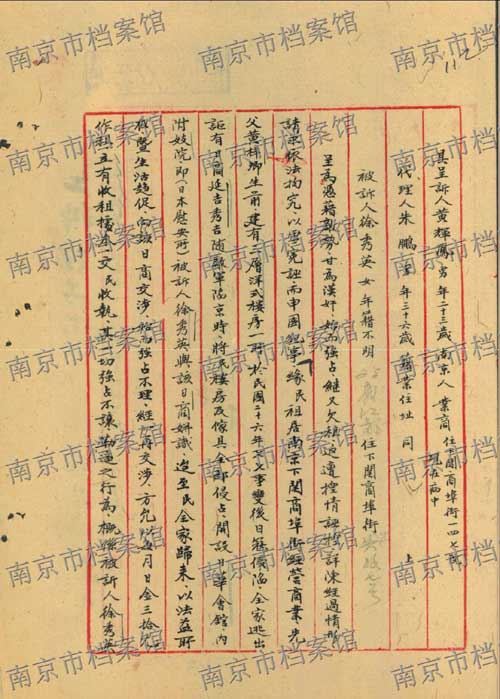 具呈訴人黃輝鳳 男 年二十三歲 南京人 業商 住下關商埠街一四七號 現在病中
代理人朱鵬 年三十六歲 籍業住址 同上
被訴人徐秀英 女 年籍不明 住下關商埠街
呈為憑藉敵勢甘為漢奸始而強占繼又欠租遭捏情誣控詳陳經過情形
請求依法拘究以雪冤誣而申國紀事緣民租居南京下關商埠街經營商業先
父黃梓卿生前建有二層洋式樓房一所於民國二十六年七七事變後日寇陷全家逃出
詎有日商延吉秀吉隨敵軍陷京時將民樓房及傢具全部侵占開設日華會館內
附妓院即(日本慰安所)被訴人徐秀英與該日商姘識迨至民全家歸來以法益所
生活趨促向該日商交涉始而強占不理經再交涉方允以每月日金三拾
作租立有收租摺交民收執其一切強占不讓之行為概係被訴人徐秀英
南京市档案馆